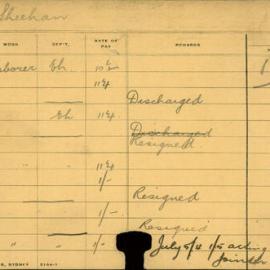 Sheehan
WORK DEP'T. RATE OF PAY REMARKS
aborer Eh
11¼
Discharged
Eh
Discharged
Resigned
11¼
1/-
Resigned
1/-
Resigned
" " 1/- July 5/13 1/5 acting
SYDNEY